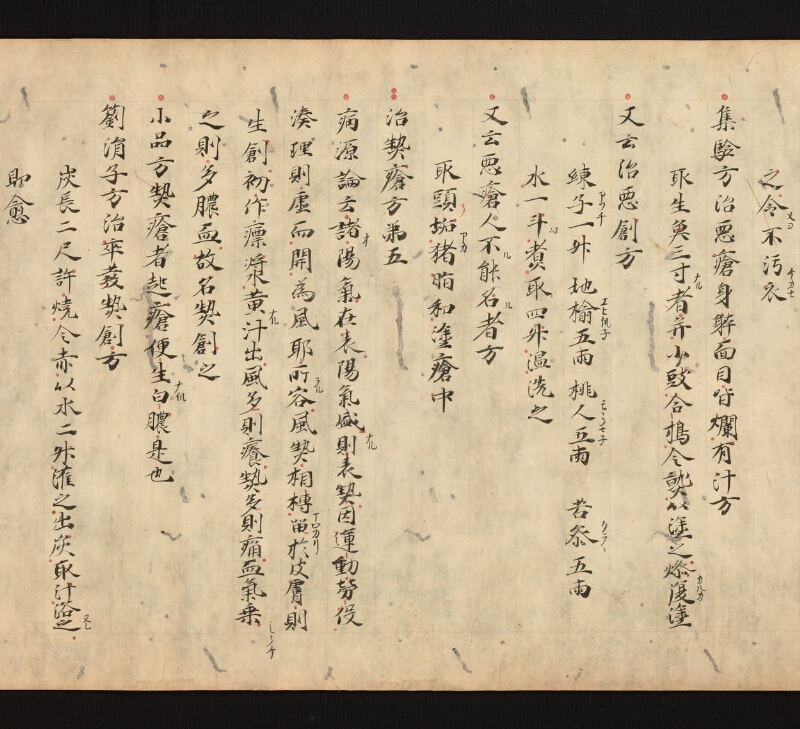 之令不污衣
集驗方治惡瘡身躰面目皆爛有汁方
取生魚三寸者并少豉合擣令熟以塗之燥復塗
又云治惡創方
練子一升 地榆五兩 桃人五兩 苦參五兩
水一斗煮取四升温洗之
又云惡瘡人不能名者方
取頭垢猪脂和塗瘡中
治熱瘡方第五
病源論云諸陽氣在表陽氣盛則表熱因運動勞役
湊理則虛而開為風耶所容風熱相搏留於皮膚則
生創初作瘭漿黄汁出風多則癢熱多則痛血氣乗
之則多膿血故名熱創之
小品方熱瘡者起瘡便生白膿是也
劉涓子方治卒發熱創方
炭長二尺許燒令赤以水二升灌之出炭取汁浴之
即愈